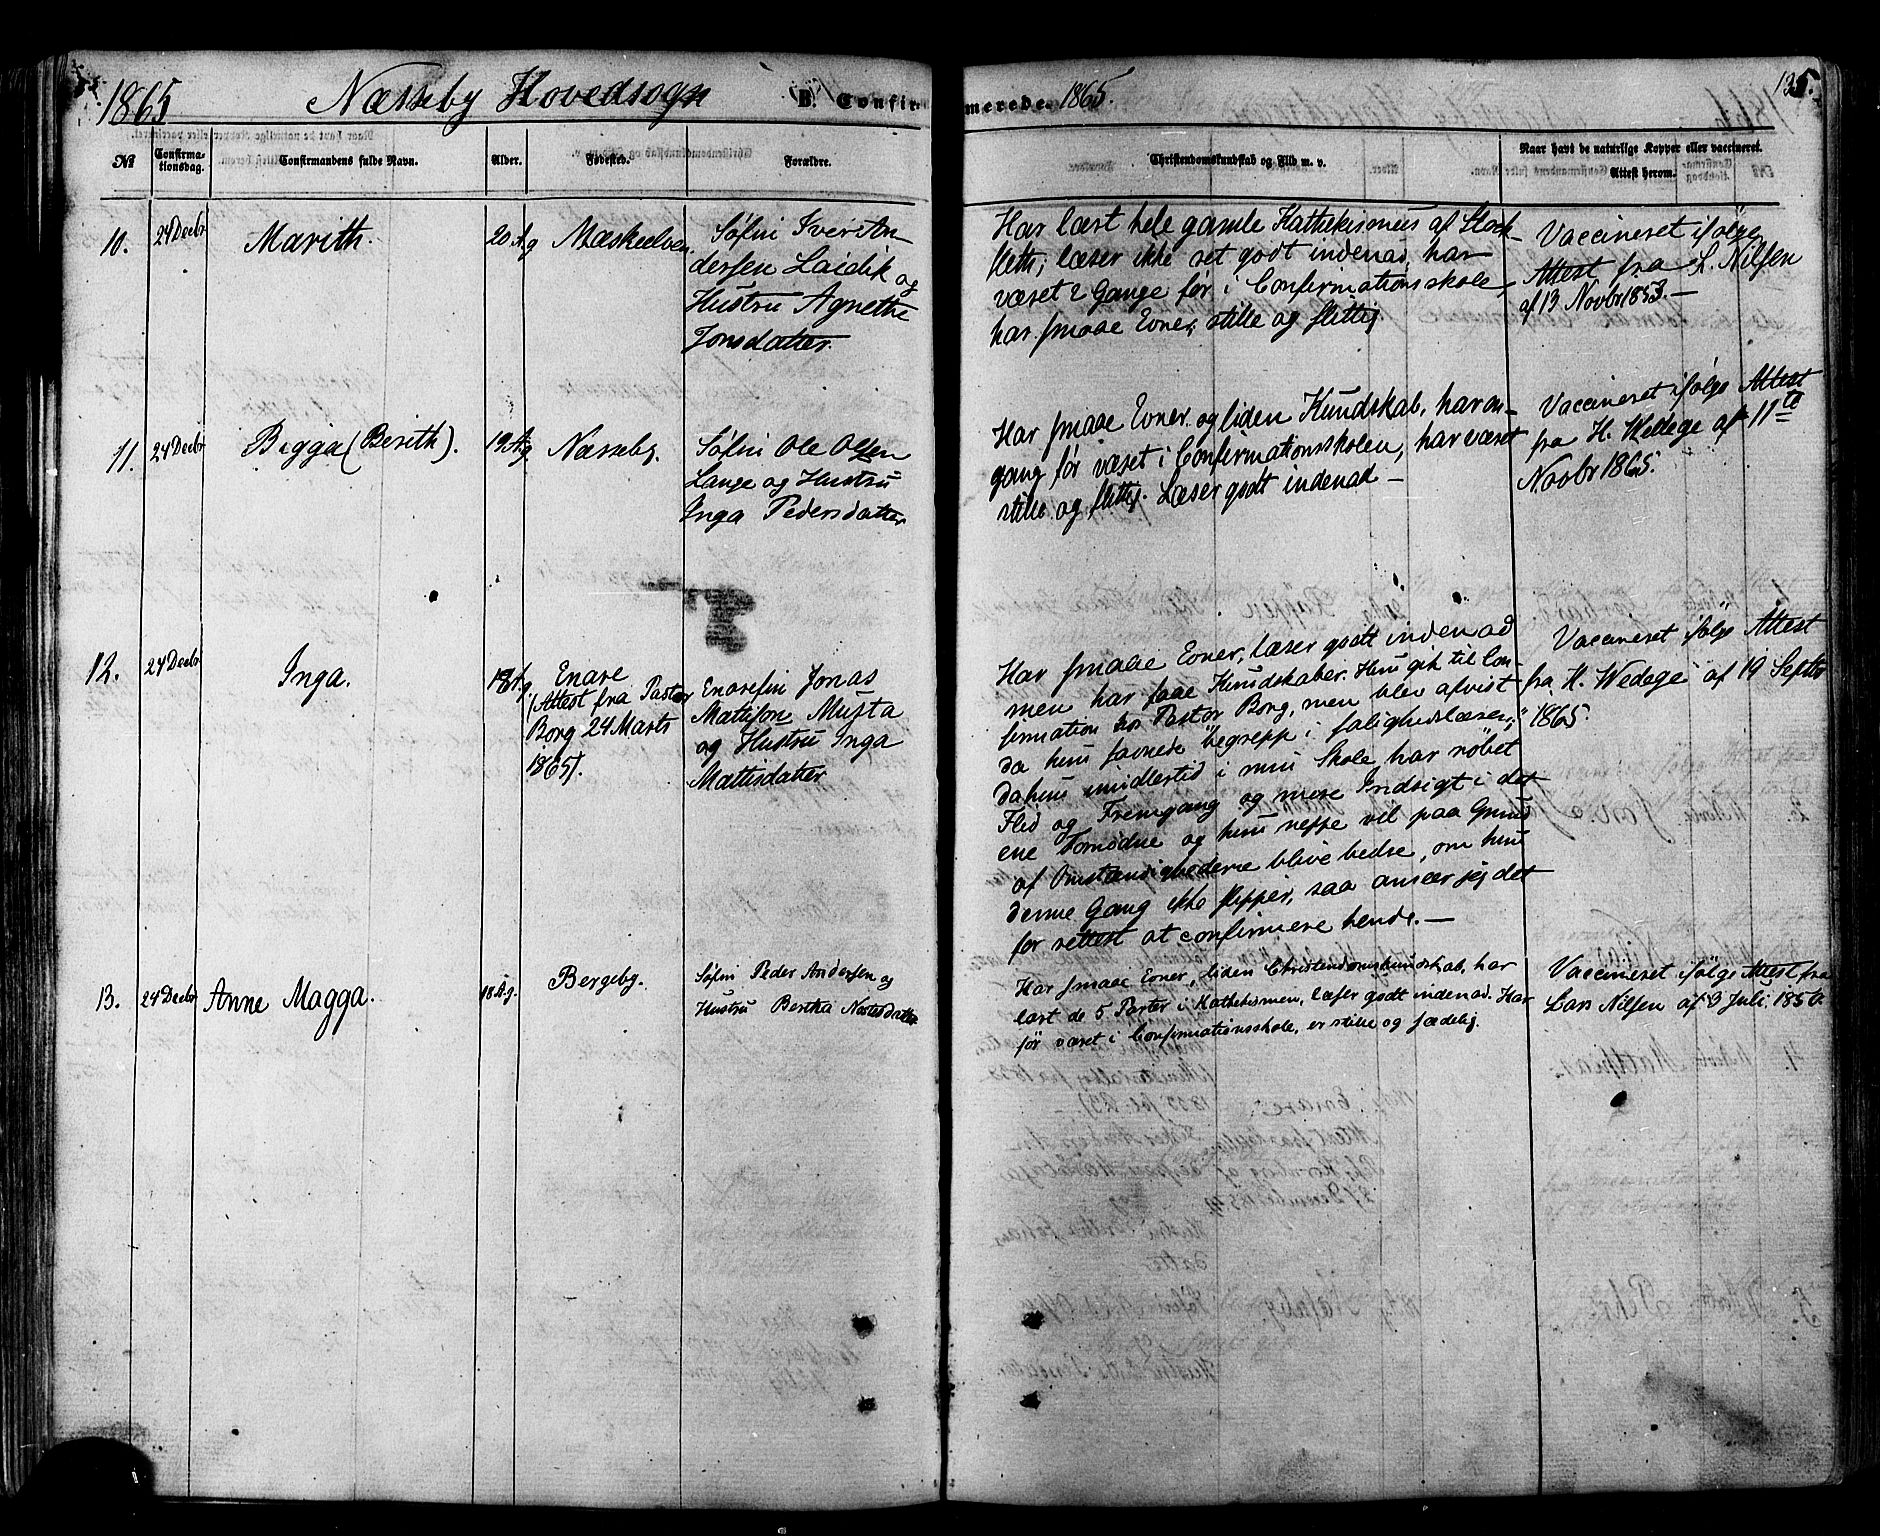 1865 Næsseby Hovedsogn B. Confir-
merede 1865. 135.
No Confirma-
tionsdag. Confirmandens fulde Navn. Alder. Fødested. Forældre.
Christendomskundskab og Flid m. v. Naar havt de naturlige Kopper eller vaccineret.
Attest herom.
10. 24 Decbr Marith. 20 Ag Mæskeelven.
Søfin Iver An-
dersen Laidik og
Hustru Agnethe
Jonsdatter.
Har læst hele gamle Kathekismus af Stock-
fleth; læser ikke ret godt indenad, har
været 2 Gange før i Confirmationsskole,
har smaae Evner, stille og flittig
Vaccineret ifølge
Attest fra L. Nilsen
af 13 Novbr 1853.—
11. 24 Decbr Bigga (Berith). 19 Ag. Næsseby.
Søfin Ole Olsen
Lange og Hustru
Inga Pedersdatter
Har smaae Evner og liden Kundskab, har en-
gang før været i Confirmationsskolen, har været
stille og flittig. Læser godt indenad —
Vaccineret ifølge Attest
fra H. Wedege af 11te
Novbr 1865.
12. 24 Decbr Inga. 18 Ag.
Enare
(Attest fra Pastor
Borg 24 Marts
1865).
Enarefin Jonas
Mattisen Musta
og Hustru Inga
Mattisdatter
Har smaae Evner, læser godt indenad
men har faae Kundskaber. Hun gik til Con-
firmation hos Pastor Borg, men blev afvist
da hun savnede "begrepp i salighedslæren;"
da hun imidlertid i min Skole har røbet
Flid og Fremgang og mere Indsigt i det
ene Fornødne og hun neppe vil paa Grund
af Omstændighederne blive bedre, om hun
denne Gang ikke slipper, saa anseer jeg det
for rettest at confirmere hende.—
Vaccineret ifølge Attest
fra H. Wedege af 19 Septbr
1865.
13. 24 Decbr Anne Magga. 18 Ag. Bergeby.
Søfin Peder Andersen og
Hustru Beretha Nostedatter
Har smaae Evner, liden Christendomskundskab, har
læst de 5 Parter i Kathekismen, læser godt indenad. Har
før været i Confirmationsskole, er stille og sædelig.
Vaccineret ifølge Attest fra
Lars Nilsen af 3 Juli 1856